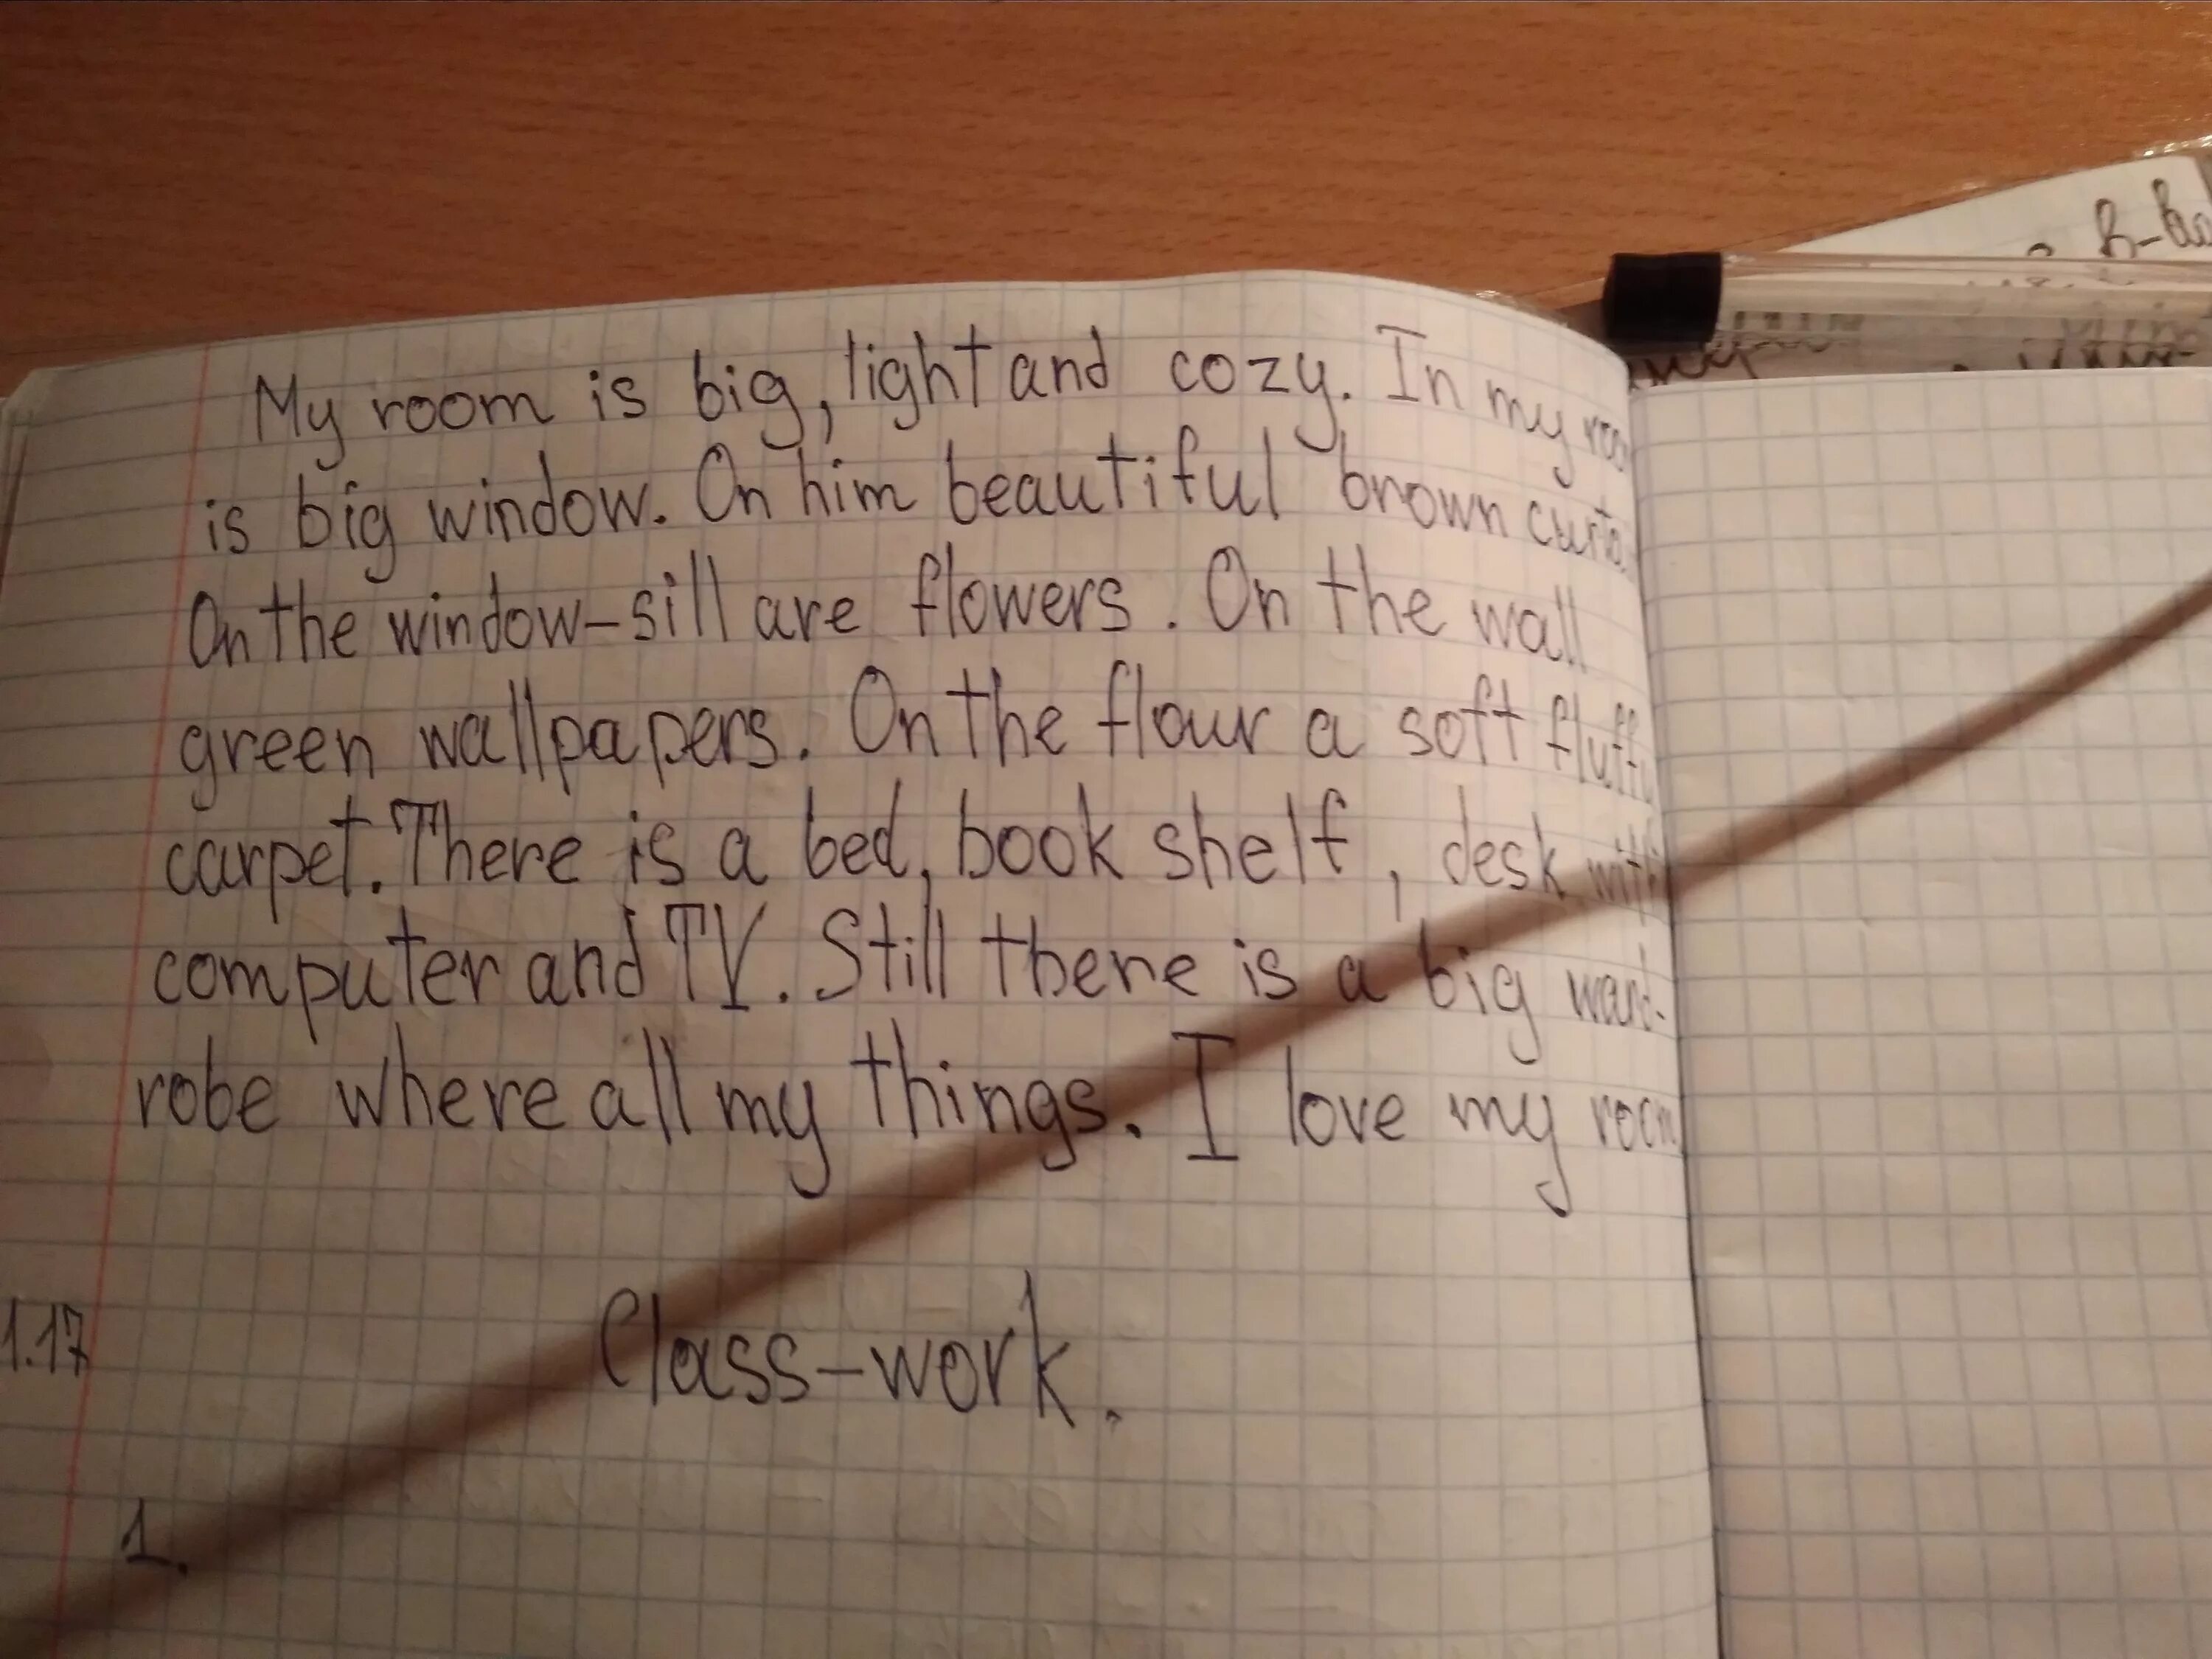 My room is big, light and cozy. In my
is big window. On him beautiful brown
On the window-sill are flowers. On the wall
green wallpapers. On the flour a soft
carpet. There is a bed, book shelf, desk with
computer and TV. Still there is a big ward-
robe where all my things. I love my room
1.17 Class-work.
1.